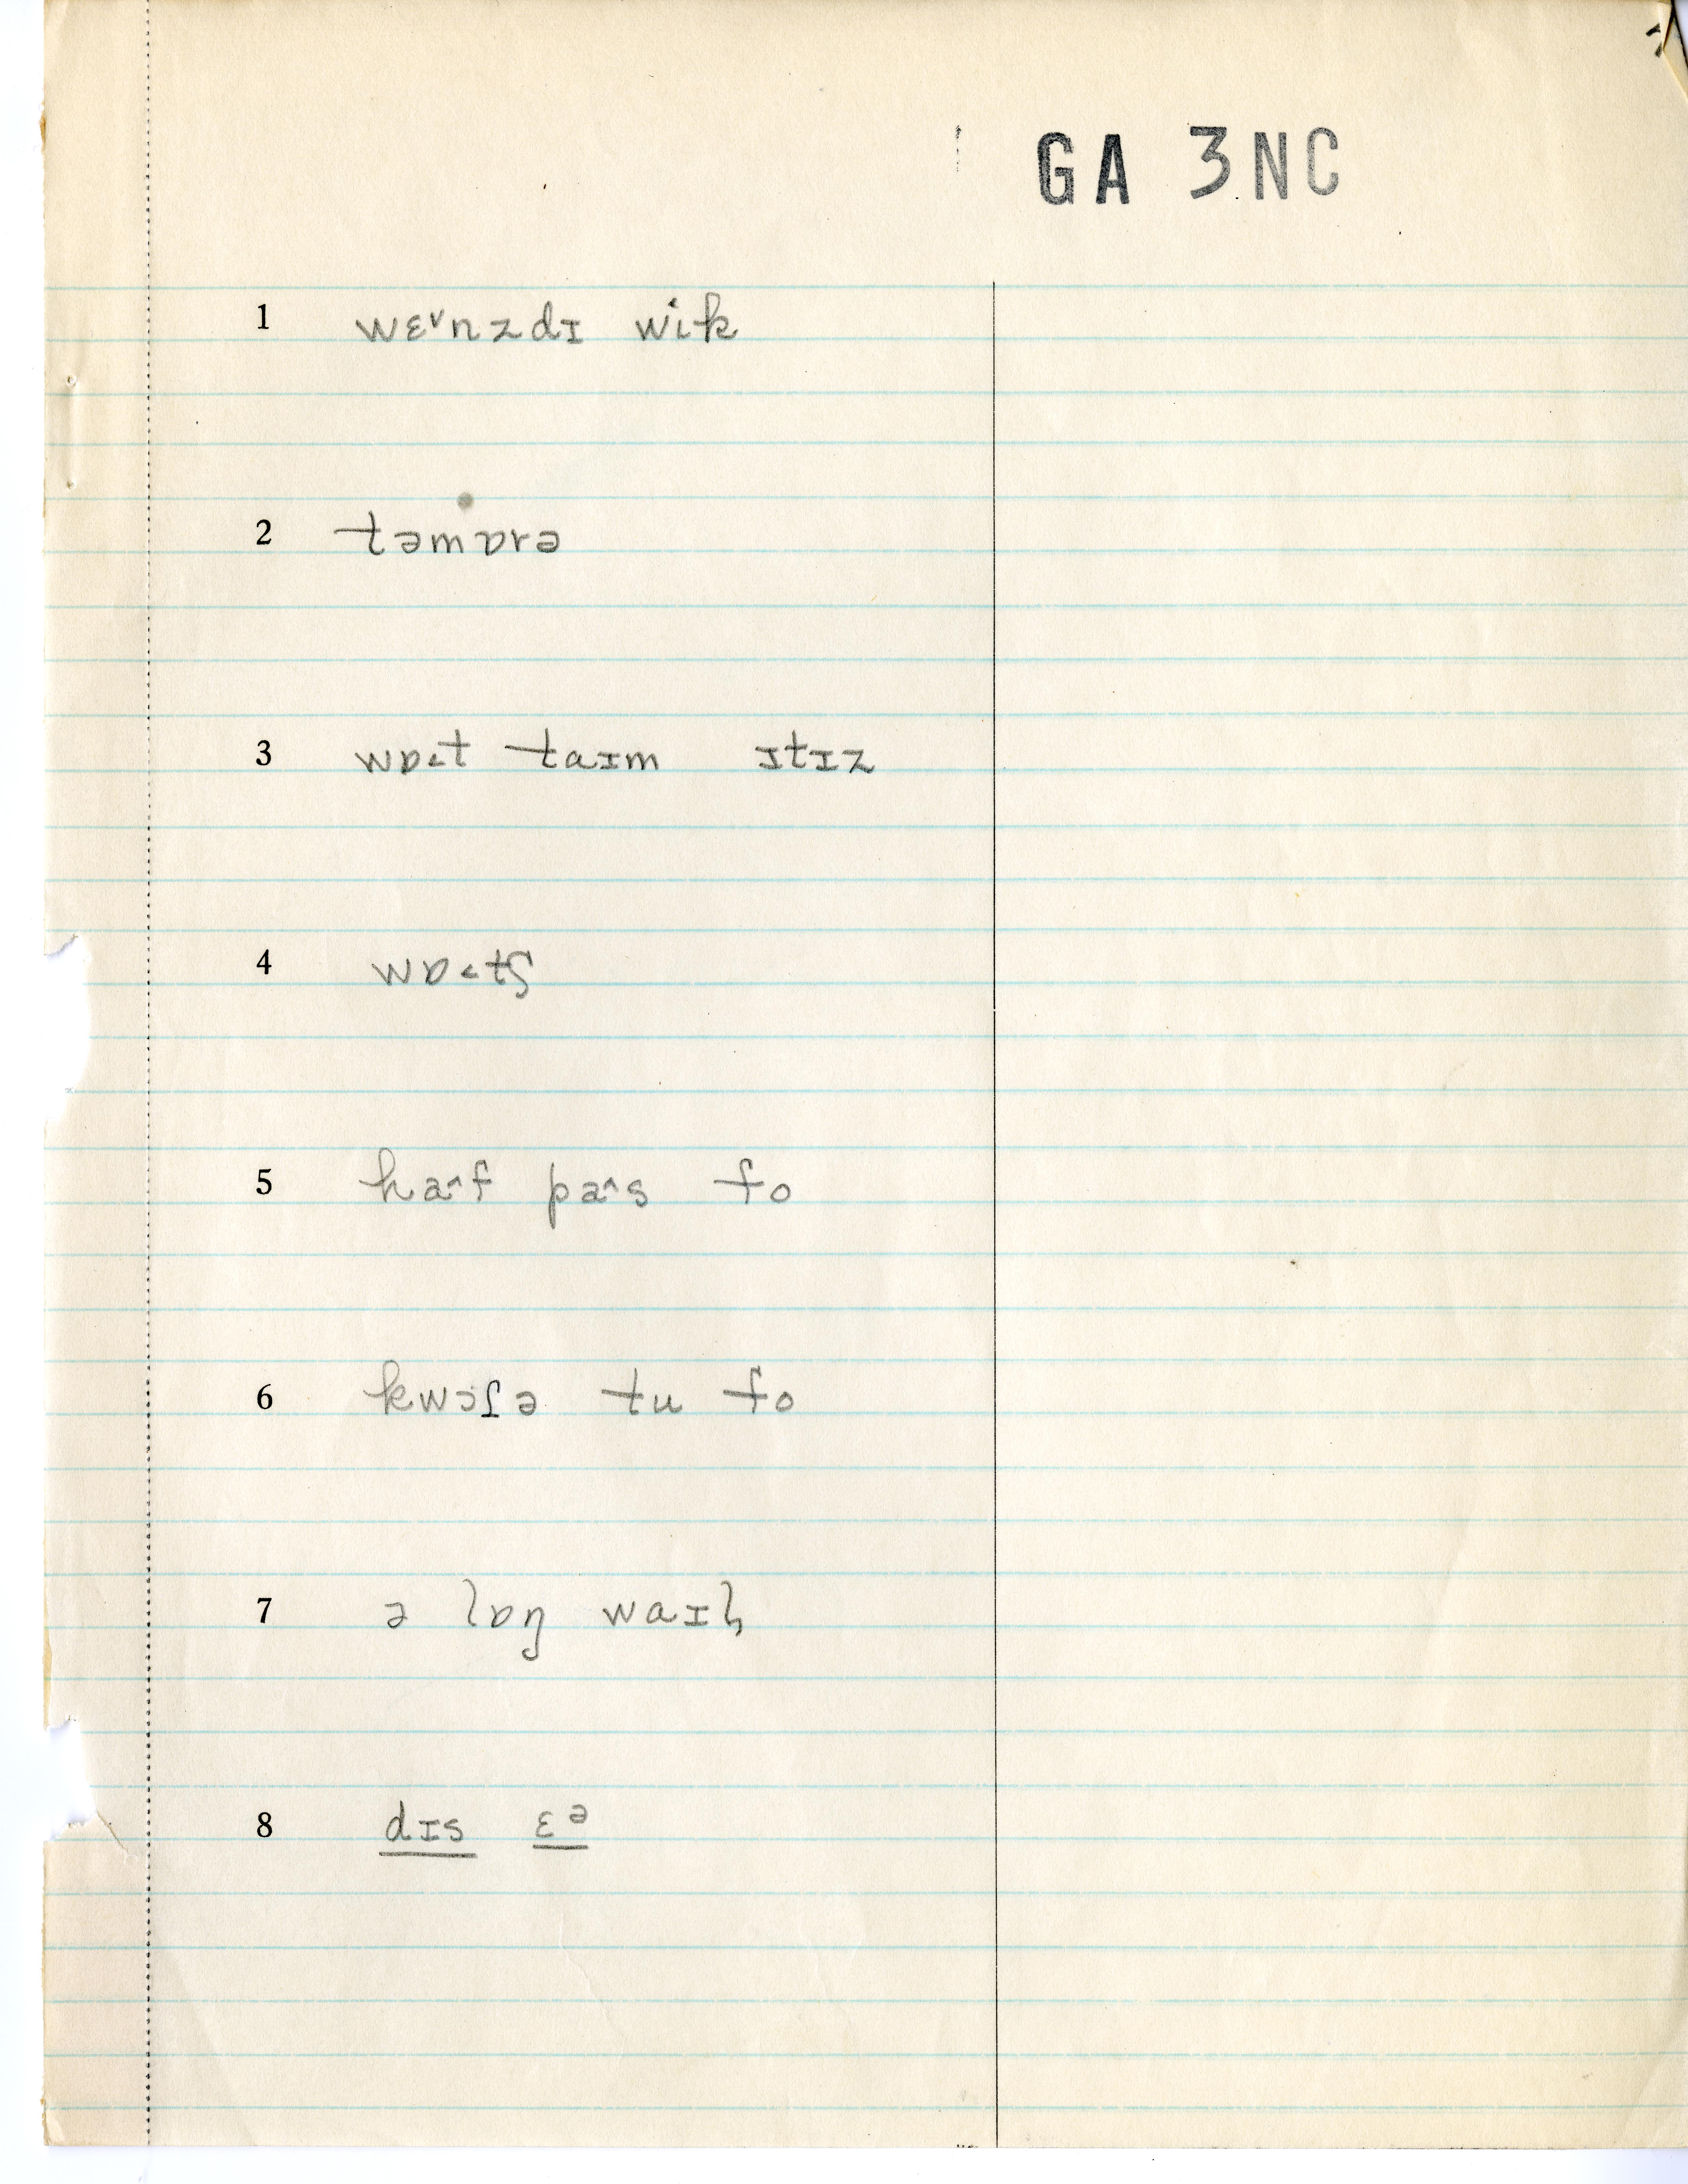 GA 3NC
1 wɛ˅nzdɪ wik
2 təmɒrə
3 wɒ˂t taɪm ɪtɪz
4 wɒ˂tʃ
5 ha˄f pa˄s fo
6 kwɔɟə tu fo
7 ə lɒŋ waɪɫ
8 dɪs ɛᵊ